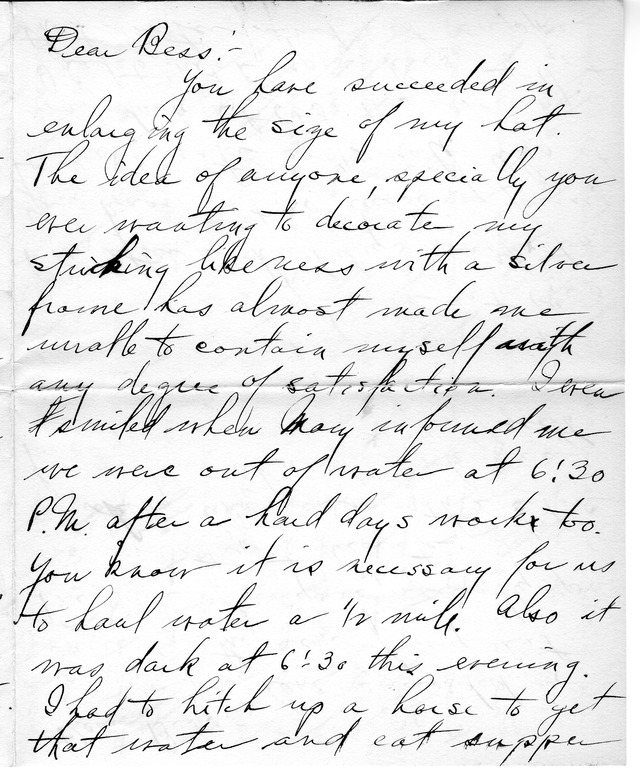 Dear Bess:-
You have succeeded in
enlarging the size of my hat.
The idea of anyone, specially you
ever wanting to decorate my
striking likeness with a silver
frame has almost made me
unable to contain myself with
any degree of satisfaction. I even
smiled when Mary informed me
we were out of water at 6:30
P.M. after a hard days work too.
You know it is necessary for us
to haul water a 1/2 mile. Also it
was dark at 6:30 this evening.
I had to hitch up a horse to get
that water and eat supper